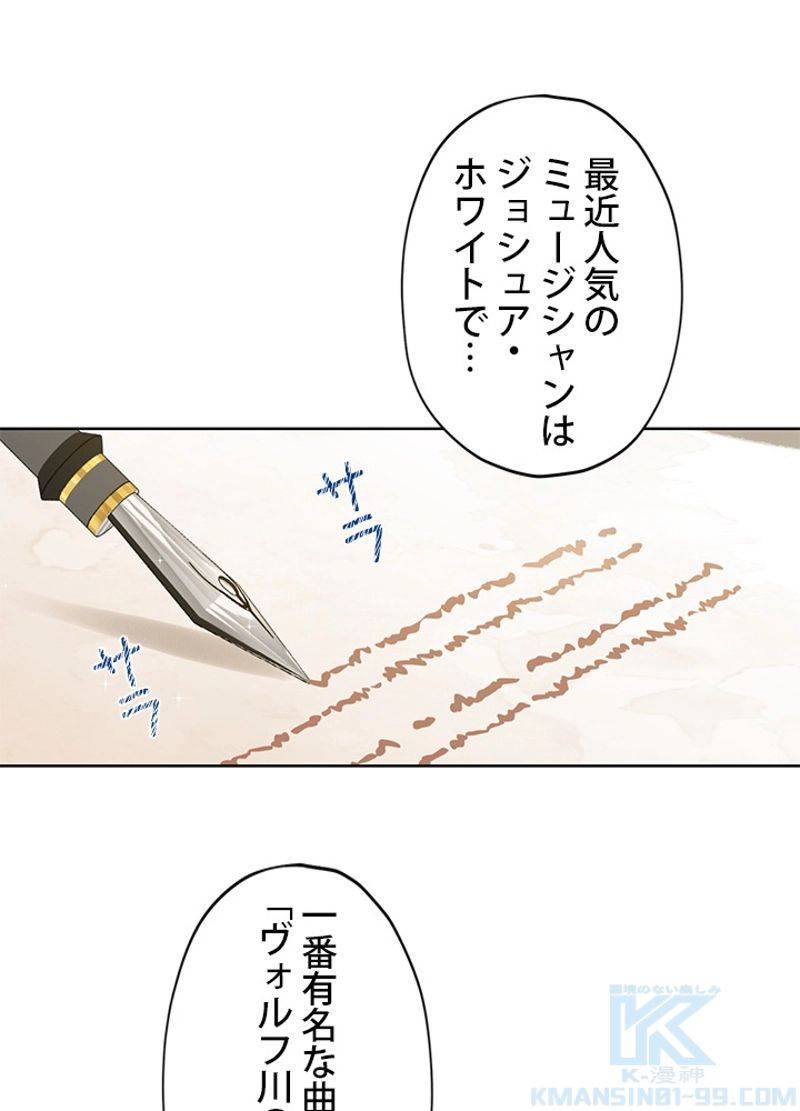 最近人気の
ミュージシャンは
ジョシュア・
ホワイトで…
サラ
サラ
一番有名な曲
「ヴォルフ川の
環境のない楽しみ
K-漫神
KMANSIN01-99.COM